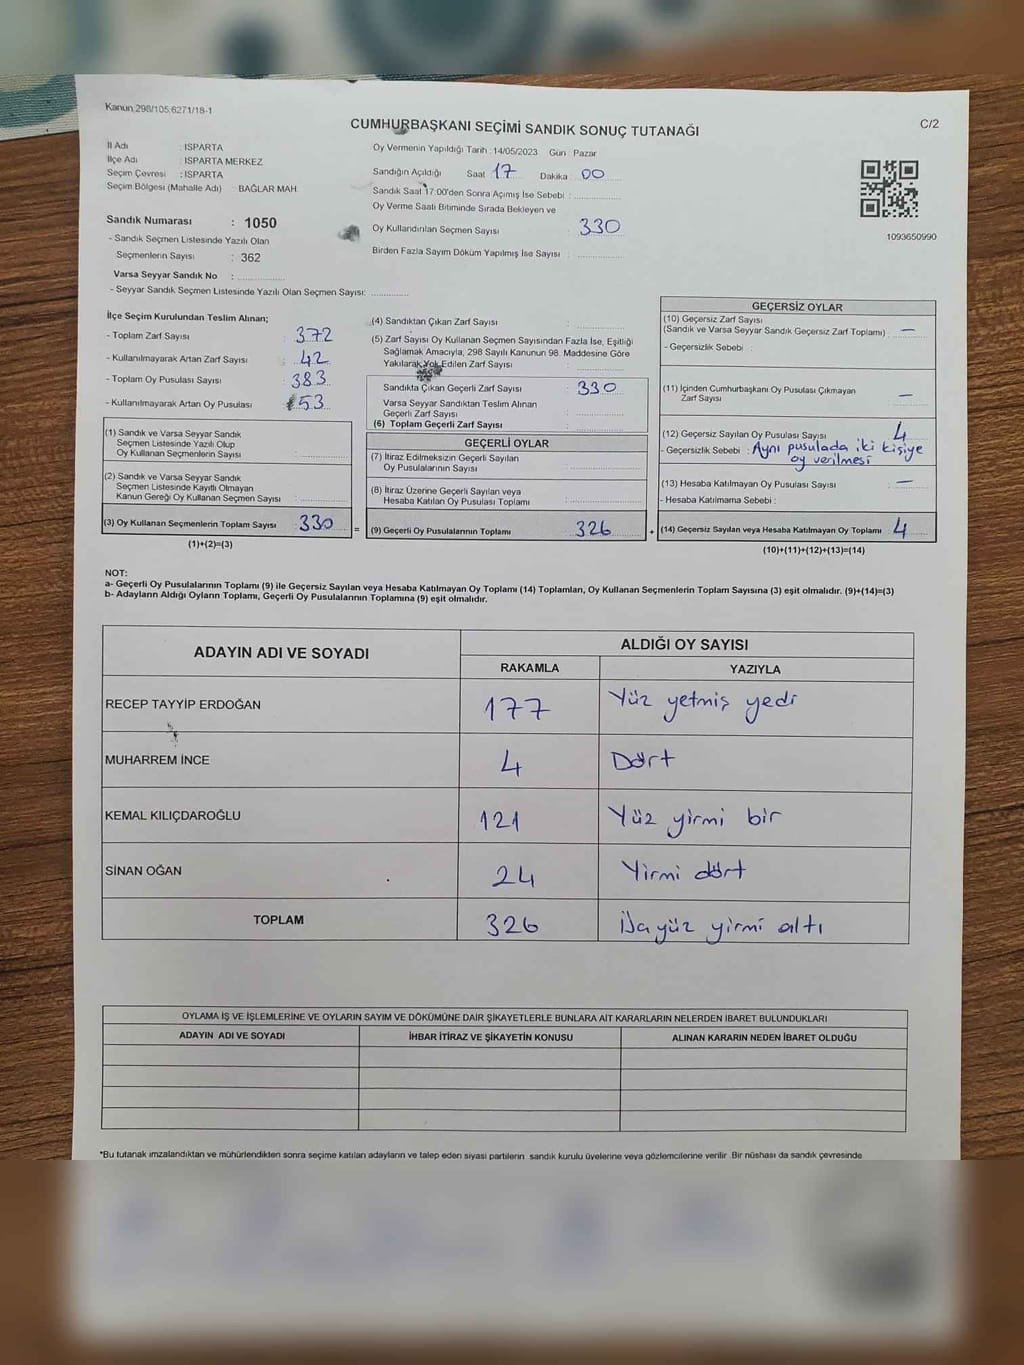 Kanun:298/105;6271/18-1
C/2
CUMHURBAŞKANI SEÇİMİ SANDIK SONUÇ TUTANAĞI
İl Adı : ISPARTA
İlçe Adı : ISPARTA MERKEZ
Seçim Çevresi : ISPARTA
Seçim Bölgesi (Mahalle Adı) : BAĞLAR MAH.
Sandık Numarası : 1050
- Sandık Seçmen Listesinde Yazılı Olan
Seçmenlerin Sayısı : 362
Varsa Seyyar Sandık No :
- Seyyar Sandık Seçmen Listesinde Yazılı Olan Seçmen Sayısı:
Oy Vermenin Yapıldığı Tarih : 14/05/2023 Gün : Pazar
Sandığın Açıldığı Saat 17 Dakika : 00
Sandık Saat 17:00'den Sonra Açımış İse Sebebi :
Oy Verme Saati Bitiminde Sırada Bekleyen ve
Oy Kullandırılan Seçmen Sayısı : 330
Birden Fazla Sayım Döküm Yapılmış İse Sayısı :
1093650990
İlçe Seçim Kurulundan Teslim Alınan;
- Toplam Zarf Sayısı : 372
- Kullanılmayarak Artan Zarf Sayısı : 42
- Toplam Oy Pusulası Sayısı : 383
- Kullanılmayarak Artan Oy Pusulası : 53
(1) Sandık ve Varsa Seyyar Sandık
Seçmen Listesinde Yazılı Olup
Oy Kullanan Seçmenlerin Sayısı :
(2) Sandık ve Varsa Seyyar Sandık
Seçmen Listesinde Kayıtlı Olmayan
Kanun Gereği Oy Kullanan Seçmen Sayısı :
(3) Oy Kullanan Seçmenlerin Toplam Sayısı : 330
(1)+(2)=(3)
(4) Sandıktan Çıkan Zarf Sayısı :
(5) Zarf Sayısı Oy Kullanan Seçmen Sayısından Fazla İse, Eşitliği
Sağlamak Amacıyla, 298 Sayılı Kanunun 98. Maddesine Göre
Yakılarak Yok Edilen Zarf Sayısı :
Sandıkta Çıkan Geçerli Zarf Sayısı : 330
Varsa Seyyar Sandıktan Teslim Alınan
Geçerli Zarf Sayısı :
(6) Toplam Geçerli Zarf Sayısı :
GEÇERLİ OYLAR
(7) İtiraz Edilmeksizin Geçerli Sayılan
Oy Pusulalarının Sayısı :
(8) İtiraz Üzerine Geçerli Sayılan veya
Hesaba Katılan Oy Pusulası Toplamı :
= (9) Geçerli Oy Pusulalarının Toplamı : 326
GEÇERSİZ OYLAR
(10) Geçersiz Zarf Sayısı
(Sandık ve Varsa Seyyar Sandık Geçersiz Zarf Toplamı) : —
- Geçersizlik Sebebi :
(11) İçinden Cumhurbaşkanı Oy Pusulası Çıkmayan
Zarf Sayısı : —
(12) Geçersiz Sayılan Oy Pusulası Sayısı : 4
- Geçersizlik Sebebi : Aynı pusulada iki kişiye
oy verilmesi
(13) Hesaba Katılmayan Oy Pusulası Sayısı : —
- Hesaba Katılmama Sebebi :
+ (14) Geçersiz Sayılan veya Hesaba Katılmayan Oy Toplamı : 4
(10)+(11)+(12)+(13)=(14)
NOT:
a- Geçerli Oy Pusulalarının Toplamı (9) ile Geçersiz Sayılan veya Hesaba Katılmayan Oy Toplamı (14) Toplamları, Oy Kullanan Seçmenlerin Toplam Sayısına (3) eşit olmalıdır. (9)+(14)=(3)
b- Adayların Aldığı Oyların Toplamı, Geçerli Oy Pusulalarının Toplamına (9) eşit olmalıdır.
ADAYIN ADI VE SOYADI
ALDIĞI OY SAYISI
RAKAMLA YAZIYLA
RECEP TAYYİP ERDOĞAN 177 Yüz yetmiş yedi
MUHARREM İNCE 4 Dört
KEMAL KILIÇDAROĞLU 121 Yüz yirmi bir
SİNAN OĞAN 24 Yirmi dört
TOPLAM 326 yüz yirmi altı
OYLAMA İŞ VE İŞLEMLERİNE VE OYLARIN SAYIM VE DÖKÜMÜNE DAİR ŞİKAYETLERLE BUNLARA AİT KARARLARIN NELERDEN İBARET BULUNDUKLARI
ADAYIN ADI VE SOYADI İHBAR İTİRAZ VE ŞİKAYETİN KONUSU ALINAN KARARIN NEDEN İBARET OLDUĞU
*Bu tutanak imzalandıktan ve mühürlendikten sonra seçime katılan adayların ve talep eden siyasi partilerin sandık kurulu üyelerine veya gözlemcilerine verilir. Bir nüshası da sandık çevresinde